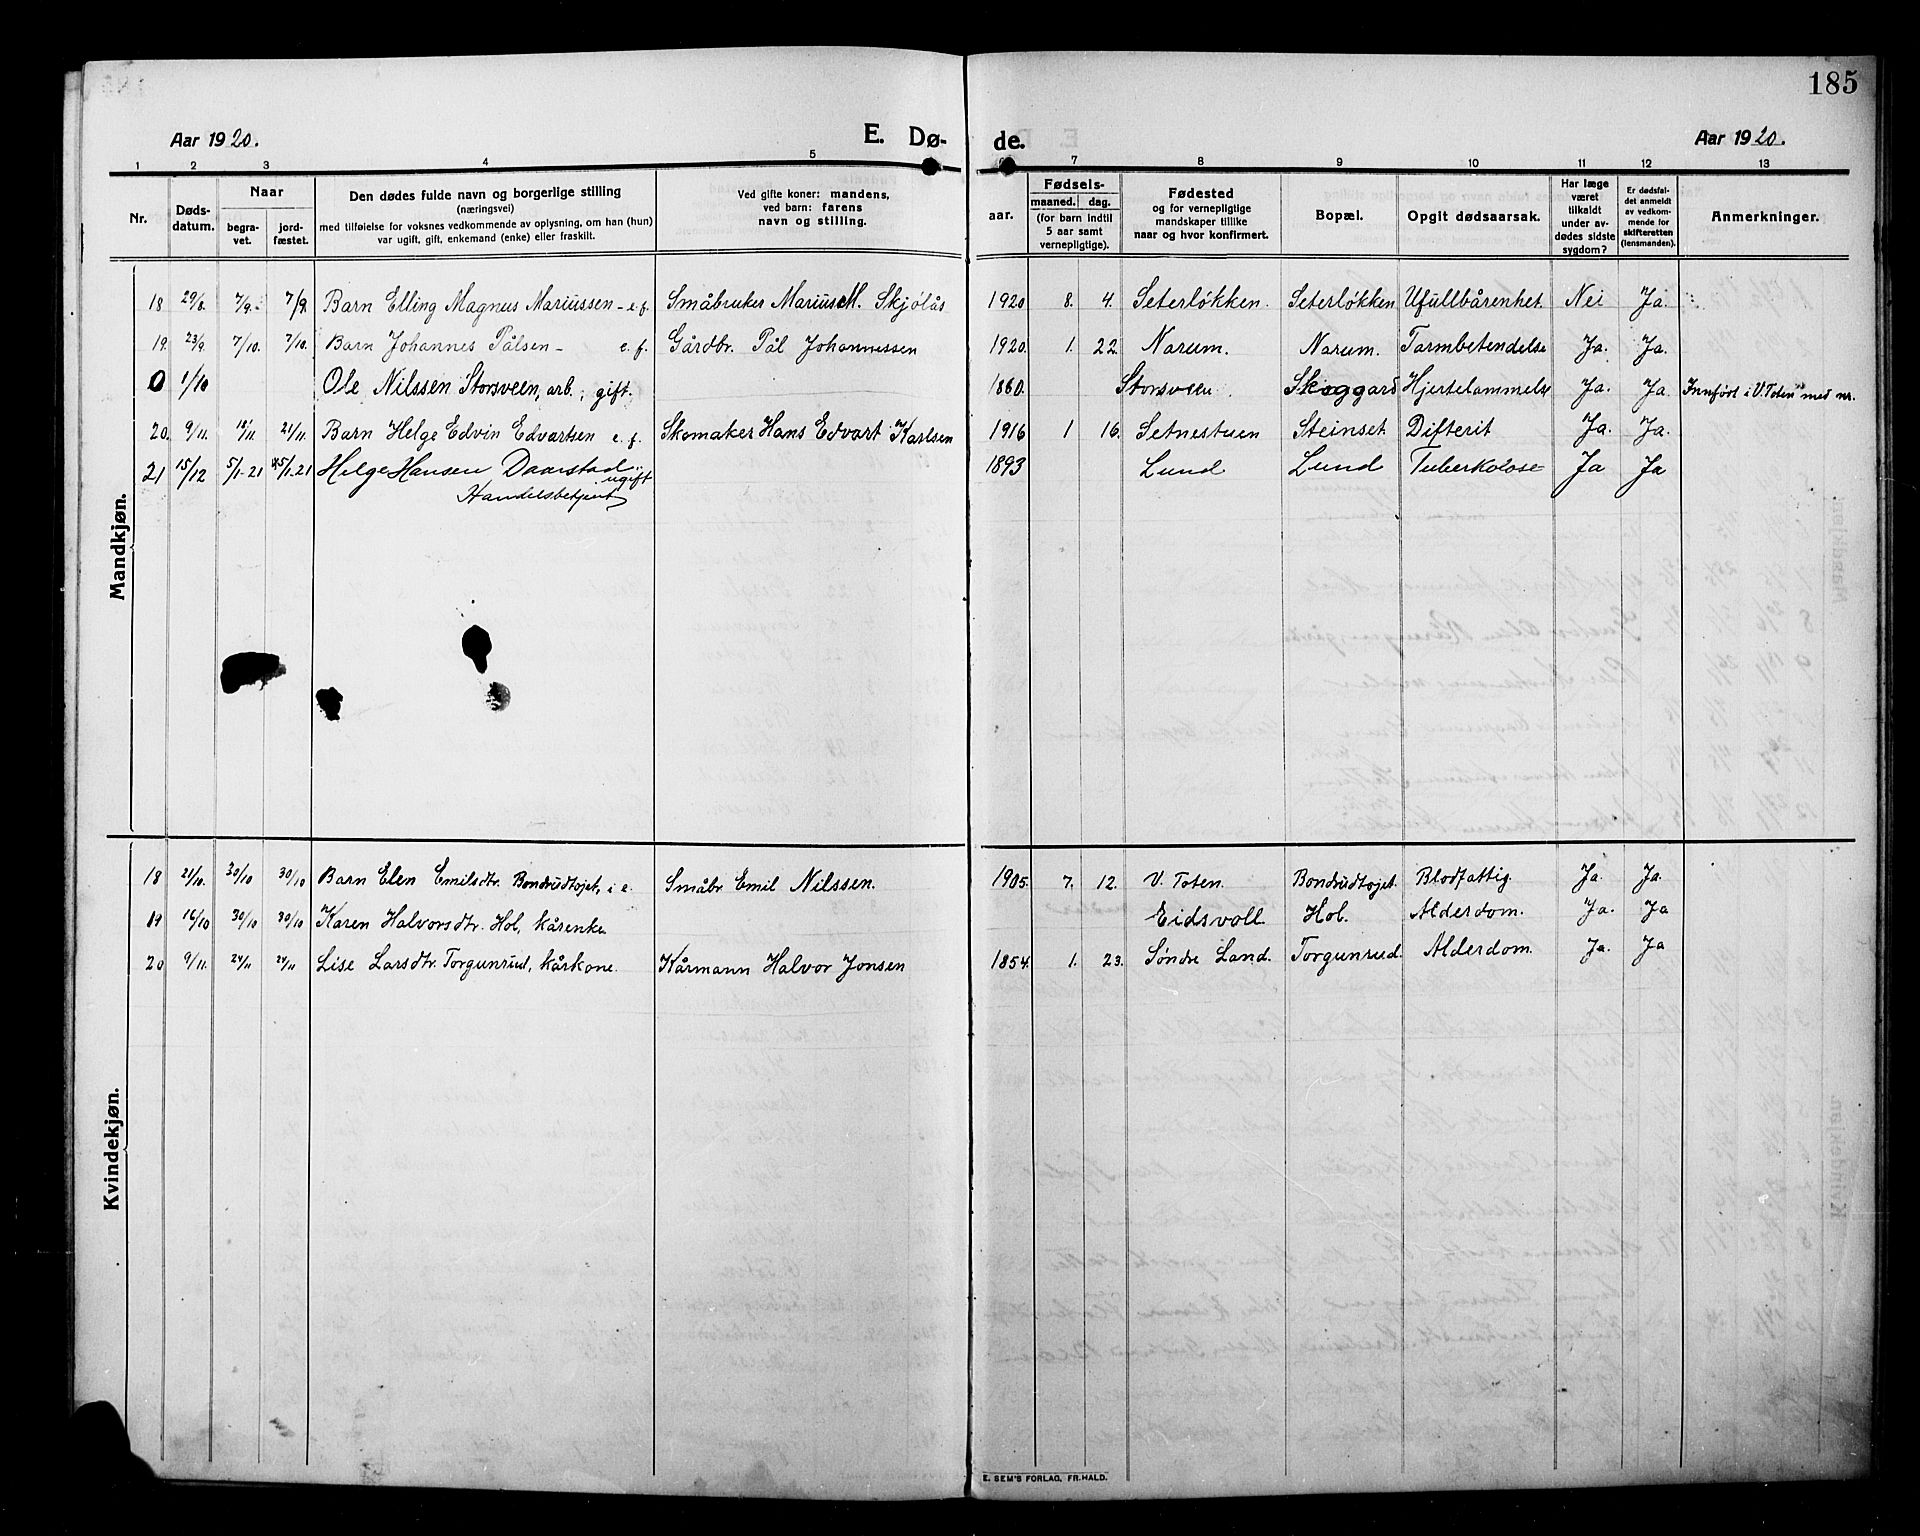 185
Aar 1920.
E. Dø-
de.
Aar 1920.
1 2 3 4 5 7 8 9 10 11 12 13
Nr.
Døds-
datum.
Naar
begra-
vet.
jord-
fæstet.
Den dødes fulde navn og borgerlige stilling
(næringsvei)
med tilføielse for voksnes vedkommende av oplysning, om han (hun)
var ugift, gift, enkemand (enke) eller fraskilt.
Ved gifte koner: mandens,
ved barn: farens
navn og stilling.
Fødsels-
aar.
maaned.
dag.
(for barn indtil
5 aar samt
vernepligtige).
Fødested
og for vernepligtige
mandskaper tillike
naar og hvor konfirmert.
Bopæl.
Opgit dødsaarsak.
Har læge
været
tilkaldt
under av-
dødes sidste
sygdom?
Er dødsfal-
det anmeldt
av vedkom-
mende for
skifteretten
(lensmanden).
Anmerkninger.
Mandkjøn.
18 29/8. 7/9. 7/9. Barn Elling Magnus Mariussen - e.f. Småbruker Marius M. Skjølås 1920 8. 4. Seterløkken. Seterløkken Ufullbårenhet. Nei Ja.
19. 23/9. 7/10. 7/10. Barn Johannes Pålsen - e.f. Gårdbr. Pål Johannessen 1920. 1. 22. Narum. Narum. Tarmbetendelse Ja. Ja.
0 1/10 Ole Nilssen Storsveen, arb.; gift. 1860. Storsveen. Skoggard Hjertelammelse Ja. Ja. Innført i V. Toten med nr.
20. 9/11. 12/11. 21/11. Barn Helge Edvin Edvartsen e.f. Skomaker Hans Edvart Karlsen 1916 1 16. Setnestuen Steinset. Difterit Ja. Ja.
21 15/12 5/1-21 5/1.21 Helge Hansen Daarstad ugift 1893 Lund Lund Tuberkolose Ja Ja
Handelsbetjent
Kvindekjøn.
18 21/10. 30/10 30/10 Barn Elen Emilsdtr. Bondrudtojet, i e. Småbr. Emil Nilssen. 1905. 7. 12. V. Toten. Bondrudtojet. Blodfattig. Ja. Ja.
19 16/10 30/10 30/10 Karen Halvorsdtr. Hol, kårenke Eidsvoll Hol. Alderdom. Ja. Ja
20 9/11. 24/11 24/11 Lise Larsdtr. Torgunrud, kårkone. Kårmann Halvor Jonsen 1854. 1. 23. Søndre Land. Torgunrud. Alderdom. Ja. Ja
E. SEM'S FORLAG, FR.HALD.